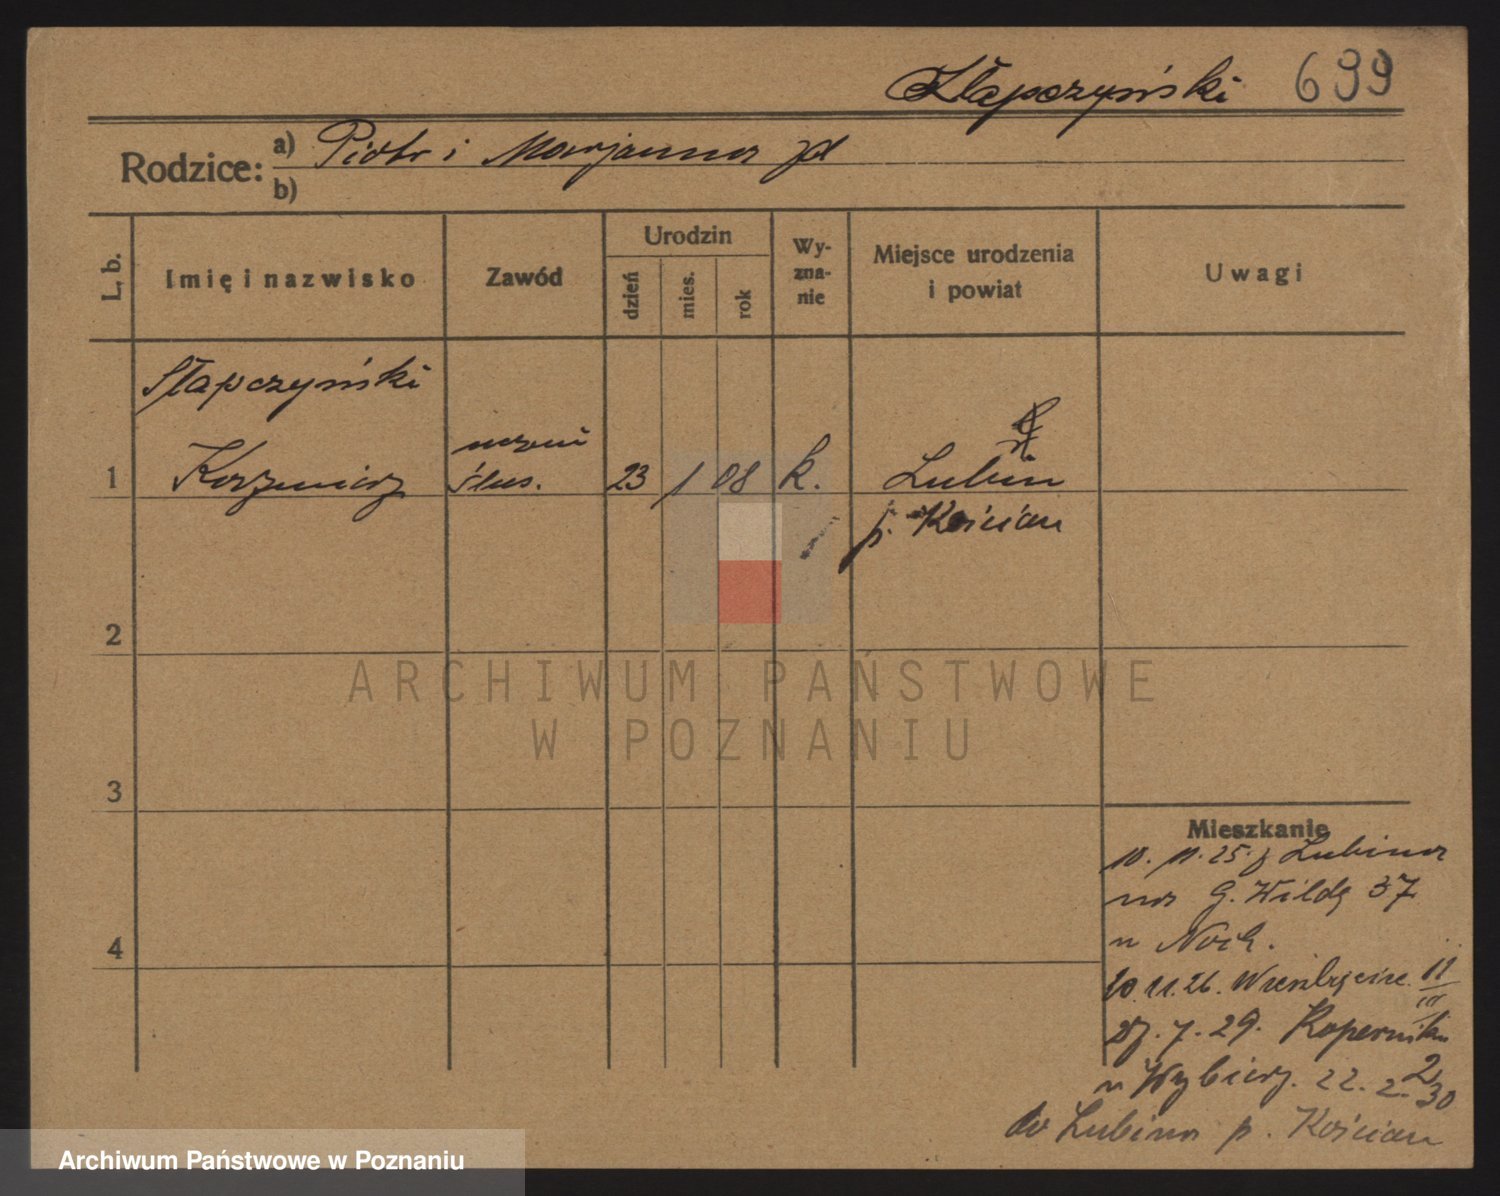 Słapczyński 699
Rodzice: a) Piotr i Marjanna
b)
L. b. Imię i nazwisko Zawód Urodzin dzień mies. rok Wy-zna-nie Miejsce urodzenia i powiat Uwagi
Słapczyński
uczeń
1 Kazimierz ślus. 23 1 08 k. Lubin
p. Kościan
2
ARCHIWUM PAŃSTWOWE
W POZNANIU
3
4
Mieszkanie
10. 11. 25. z Lubina
na G. Wildę 37
u
20. 11. 26. 11
III
27. 7. 29. Kopernika
u 22. 2. 30
2
do Lubina p. Kościan
Archiwum Państwowe w Poznaniu